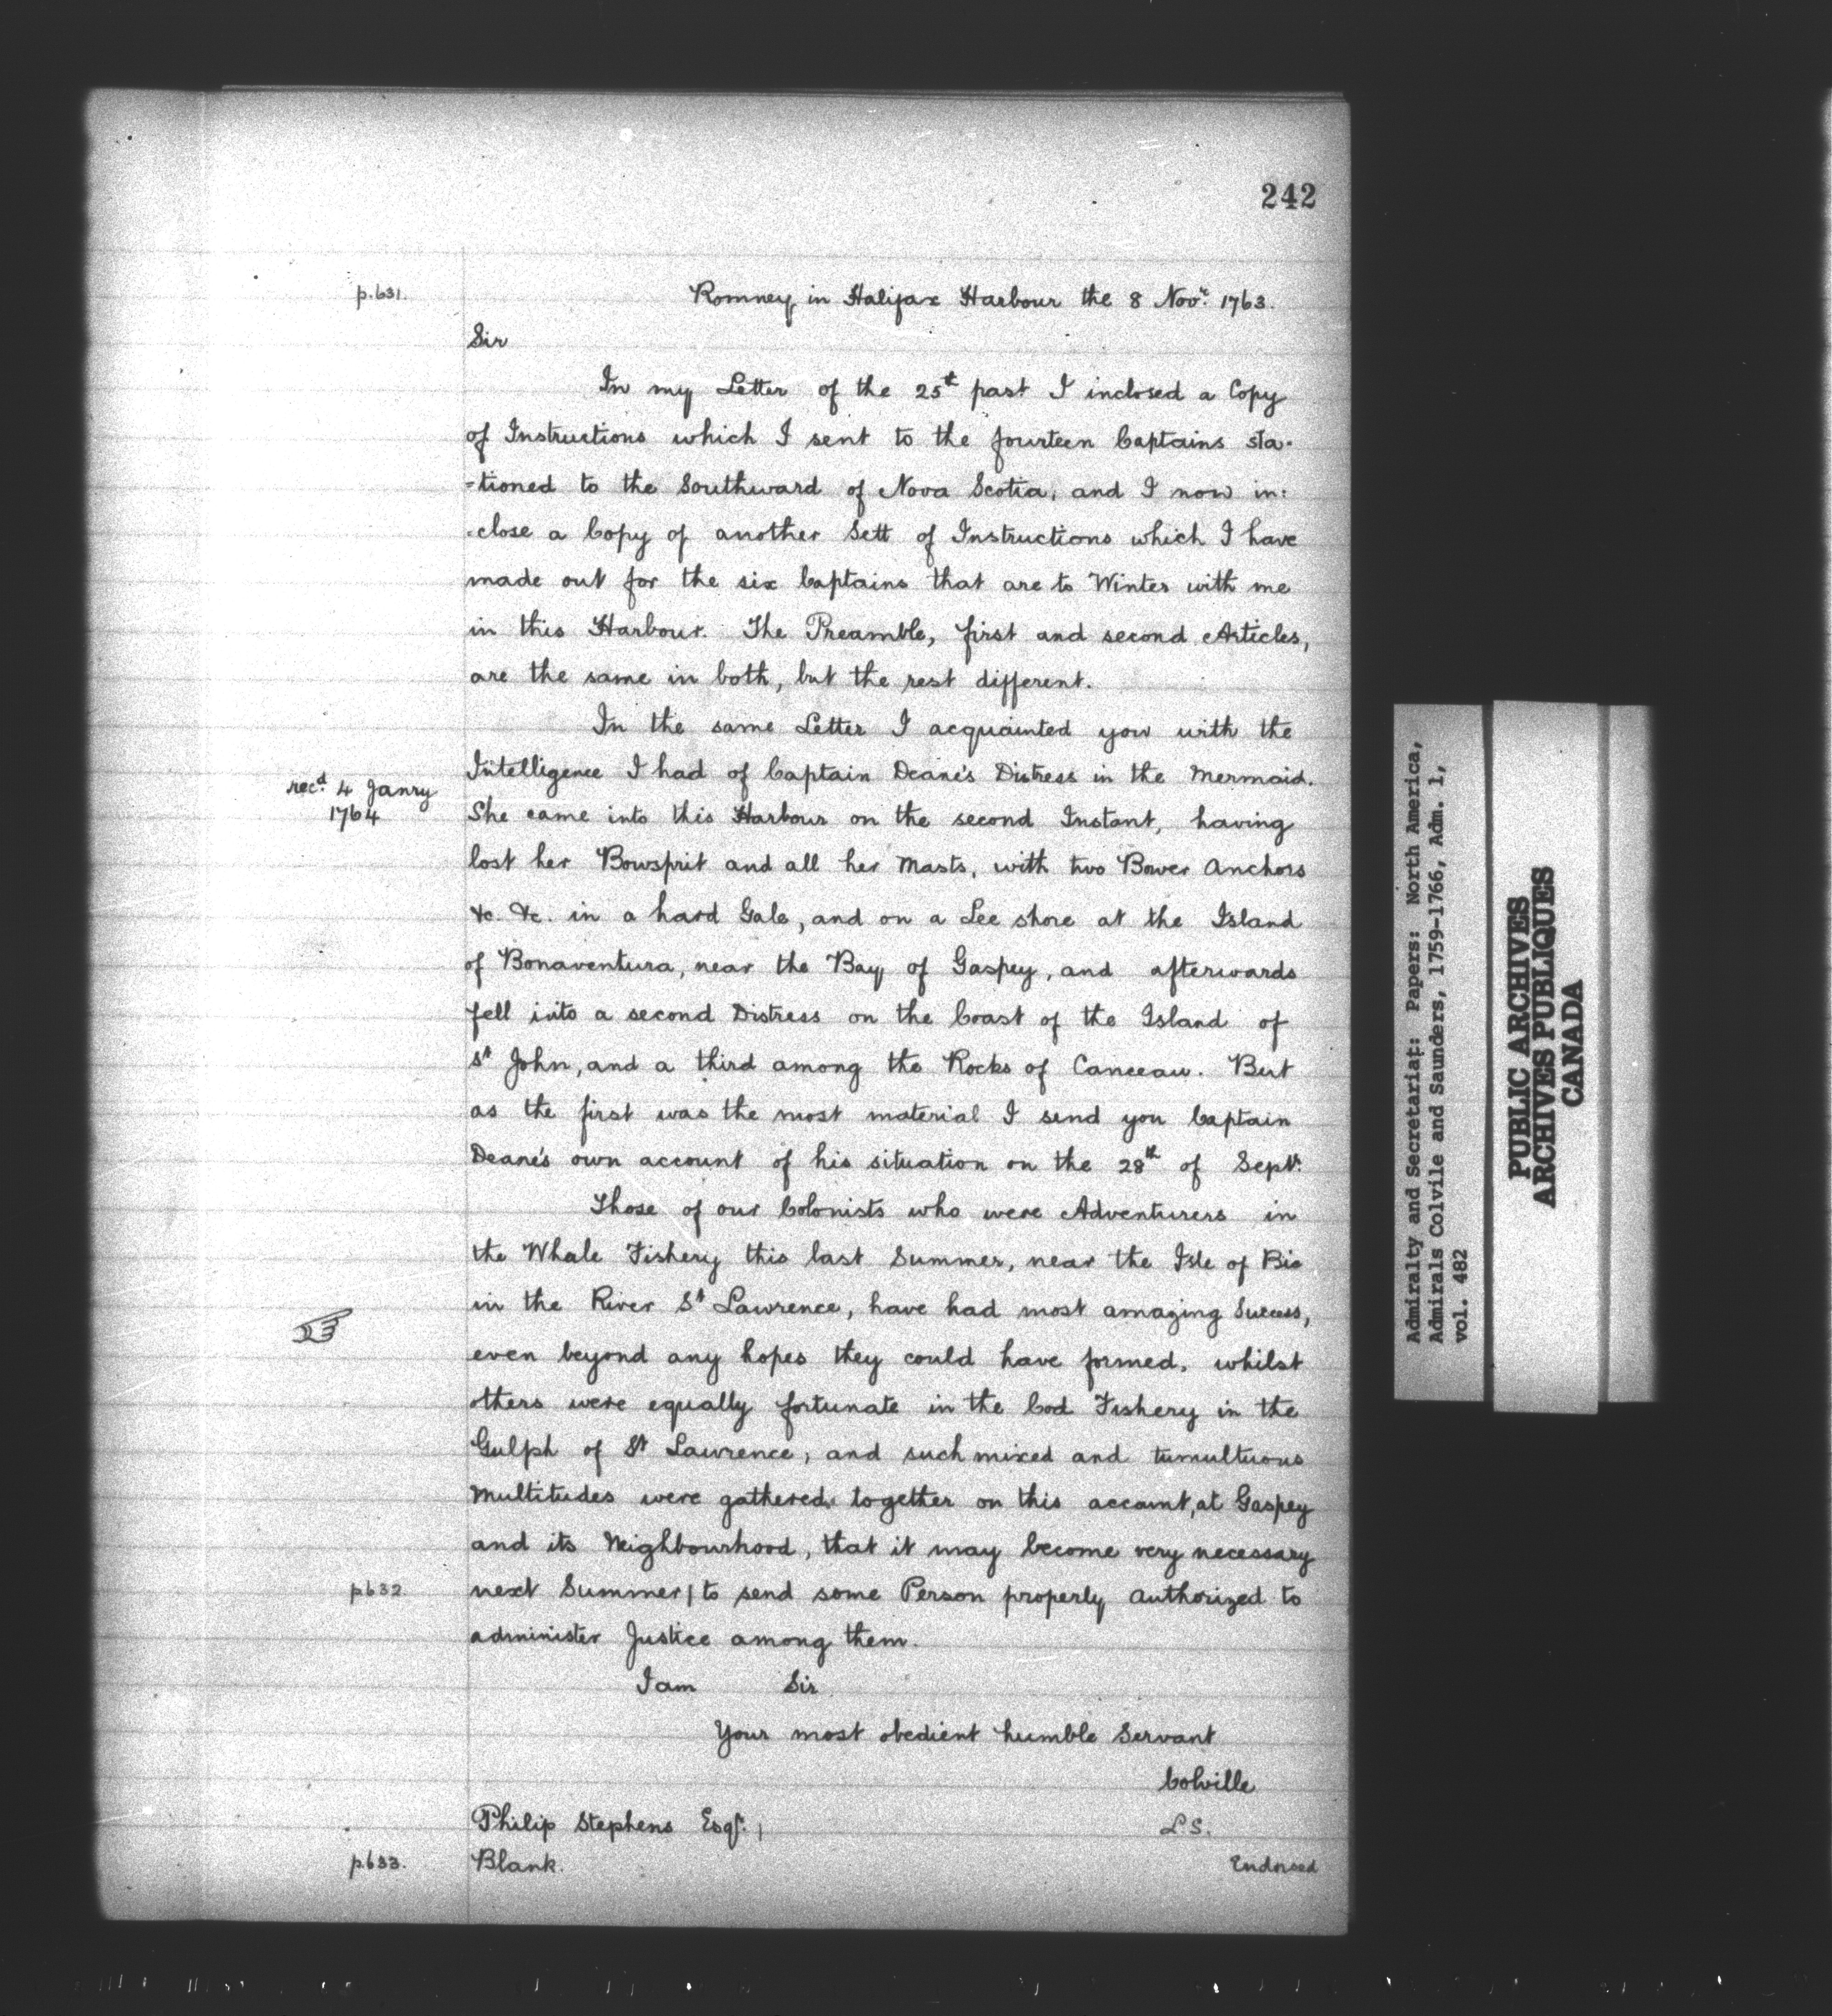 242
p.631.
Romney in Halifax Harbour the 8 Novr. 1763.
Sir
In my Letter of the 25th past I inclosed a Copy
of Instructions which I sent to the fourteen Captains sta-
=tioned to the Southward of Nova Scotia, and I now in:
-close a Copy of another Sett of Instructions which I have
made out for the six Captains that are to Winter with me
in this Harbour. The Preamble, first and second Articles,
are the same in both, but the rest different.
In the same Letter I acquainted you with the
Intelligence I had of Captain Deane's Distress in the Mermaid.
recd. 4 Janry
1764
She came into this Harbour on the second Instant, having
lost her Bowsprit and all her Masts, with two Bower Anchors
&c. &c. in a hard Gale, and on a Lee shore at the Island
of Bonaventura, near the Bay of Gaspey, and afterwards
fell into a second Distress on the Coast of the Island of
St John, and a third among the Rocks of Canceau. But
as the first was the most material I send you Captain
Deane's own account of his situation on the 28th of Septr.
Those of our Colonists who were Adventurers in
the Whale Fishery this last Summer, near the Isle of Bic
in the River St Lawrence, have had most amazing Success,
even beyond any hopes they could have formed, whilst
others were equally fortunate in the Cod Fishery in the
Gulph of St Lawrence; and such mixed and tumultuous
Multitudes were gathered together on this account, at Gaspey
and its Neighbourhood, that it may become very necessary
p632.
next Summer / to send some Person properly Authorized to
administer Justice among them.
I am Sir
Your most obedient humble Servant
Colville
Philip Stephens Esqr. /
L.S.
p.633.
Blank.
Endorsed
Admiralty and Secretariat: Papers: North America,
Admirals Colvile and Saunders, 1759-1766, Adm. 1,
vol. 482
PUBLIC ARCHIVES
ARCHIVES PUBLIQUES
CANADA